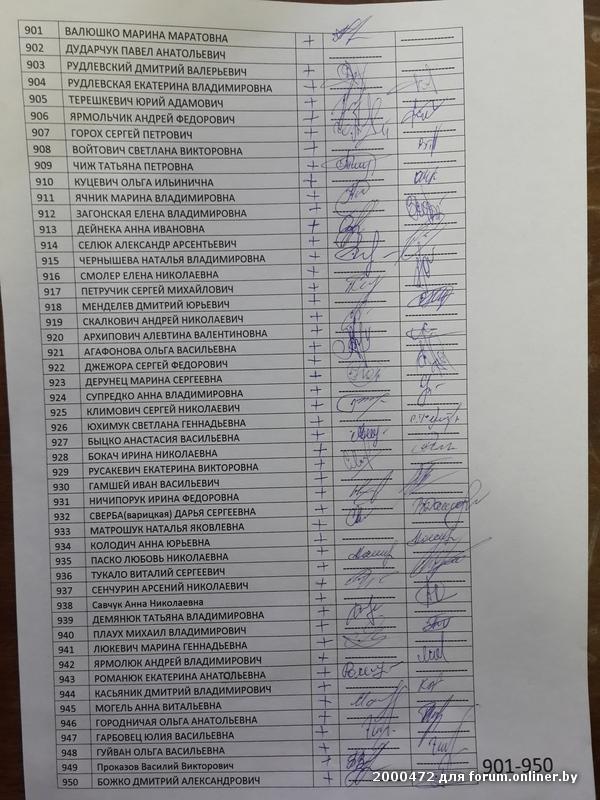 901 ВАЛЮШКО МАРИНА МАРАТОВНА +
902 ДУДАРЧУК ПАВЕЛ АНАТОЛЬЕВИЧ
903 РУДЛЕВСКИЙ ДМИТРИЙ ВАЛЕРЬЕВИЧ +
904 РУДЛЕВСКАЯ ЕКАТЕРИНА ВЛАДИМИРОВНА +
905 ТЕРЕШКЕВИЧ ЮРИЙ АДАМОВИЧ +
906 ЯРМОЛЬЧИК АНДРЕЙ ФЕДОРОВИЧ +
907 ГОРОХ СЕРГЕЙ ПЕТРОВИЧ +
908 ВОЙТОВИЧ СВЕТЛАНА ВИКТОРОВНА +
909 ЧИЖ ТАТЬЯНА ПЕТРОВНА +
910 КУЦЕВИЧ ОЛЬГА ИЛЬИНИЧНА +
911 ЯЧНИК МАРИНА ВЛАДИМИРОВНА +
912 ЗАГОНСКАЯ ЕЛЕНА ВЛАДИМИРОВНА +
913 ДЕЙНЕКА АННА ИВАНОВНА +
914 СЕЛЮК АЛЕКСАНДР АРСЕНТЬЕВИЧ +
915 ЧЕРНЫШЕВА НАТАЛЬЯ ВЛАДИМИРОВНА +
916 СМОЛЕР ЕЛЕНА НИКОЛАЕВНА +
917 ПЕТРУЧИК СЕРГЕЙ МИХАЙЛОВИЧ +
918 МЕНДЕЛЕВ ДМИТРИЙ ЮРЬЕВИЧ +
919 СКАЛКОВИЧ АНДРЕЙ НИКОЛАЕВИЧ +
920 АРХИПОВИЧ АЛЕВТИНА ВАЛЕНТИНОВНА +
921 АГАФОНОВА ОЛЬГА ВАСИЛЬЕВНА +
922 ДЖЕЖОРА СЕРГЕЙ ФЕДОРОВИЧ +
923 ДЕРУНЕЦ МАРИНА СЕРГЕЕВНА +
924 СУПРЕДКО АННА ВЛАДИМИРОВНА +
925 КЛИМОВИЧ СЕРГЕЙ НИКОЛАЕВИЧ +
926 ЮХИМУК СВЕТЛАНА ГЕННАДЬЕВНА +
927 БЫЦКО АНАСТАСИЯ ВАСИЛЬЕВНА +
928 БОКАЧ ИРИНА НИКОЛАЕВНА +
929 РУСАКЕВИЧ ЕКАТЕРИНА ВИКТОРОВНА +
930 ГАМШЕЙ ИВАН ВАСИЛЬЕВИЧ +
931 НИЧИПОРУК ИРИНА ФЕДОРОВНА +
932 СВЕРБА(варицкая) ДАРЬЯ СЕРГЕЕВНА +
933 МАТРОШУК НАТАЛЬЯ ЯКОВЛЕВНА +
934 КОЛОДИЧ АННА ЮРЬЕВНА +
935 ПАСКО ЛЮБОВЬ НИКОЛАЕВНА +
936 ТУКАЛО ВИТАЛИЙ СЕРГЕЕВИЧ +
937 СЕНЧУРИН АРСЕНИЙ НИКОЛАЕВИЧ +
938 Савчук Анна Николаевна +
939 ДЕМЯНЮК ТАТЬЯНА ВЛАДИМИРОВНА +
940 ПЛАУХ МИХАИЛ ВЛАДИМИРОВИЧ +
941 ЛЮКЕВИЧ МАРИНА ГЕННАДЬЕВНА +
942 ЯРМОЛЮК АНДРЕЙ ВЛАДИМИРОВИЧ +
943 РОМАНЮК ЕКАТЕРИНА АНАТОЛЬЕВНА +
944 КАСЬЯНИК ДМИТРИЙ ВЛАДИМИРОВИЧ +
945 МОГЕЛЬ АННА ВИТАЛЬЕВНА +
946 ГОРОДНИЧАЯ ОЛЬГА АНАТОЛЬЕВНА +
947 ГАРБОВЕЦ ЮЛИЯ ВАСИЛЬЕВНА +
948 ГУЙВАН ОЛЬГА ВАСИЛЬЕВНА +
949 Проказов Василий Викторович +
950 БОЖКО ДМИТРИЙ АЛЕКСАНДРОВИЧ +
901-950
2000472 для forum.onliner.by